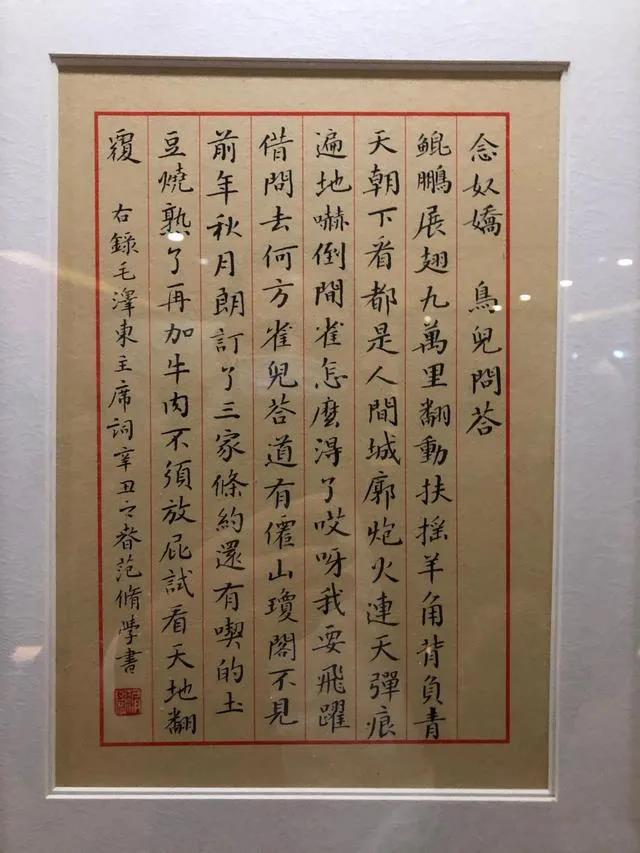 念奴嬌 鳥兒問荅
鯤鵬展翅九萬里翻動扶搖羊角背負青
天朝下看都是人間城廓炮火連天彈痕
遍地嚇倒間雀怎麼得了哎呀我要飛躍
借問去何方雀兒荅道有僊山瓊閣不見
前年秋月朗訂了三家條約還有喫的土
豆燒熟了再加牛肉不須放屁試看天地翻
覆 右錄毛澤東主席詞辛丑之春范脩學書